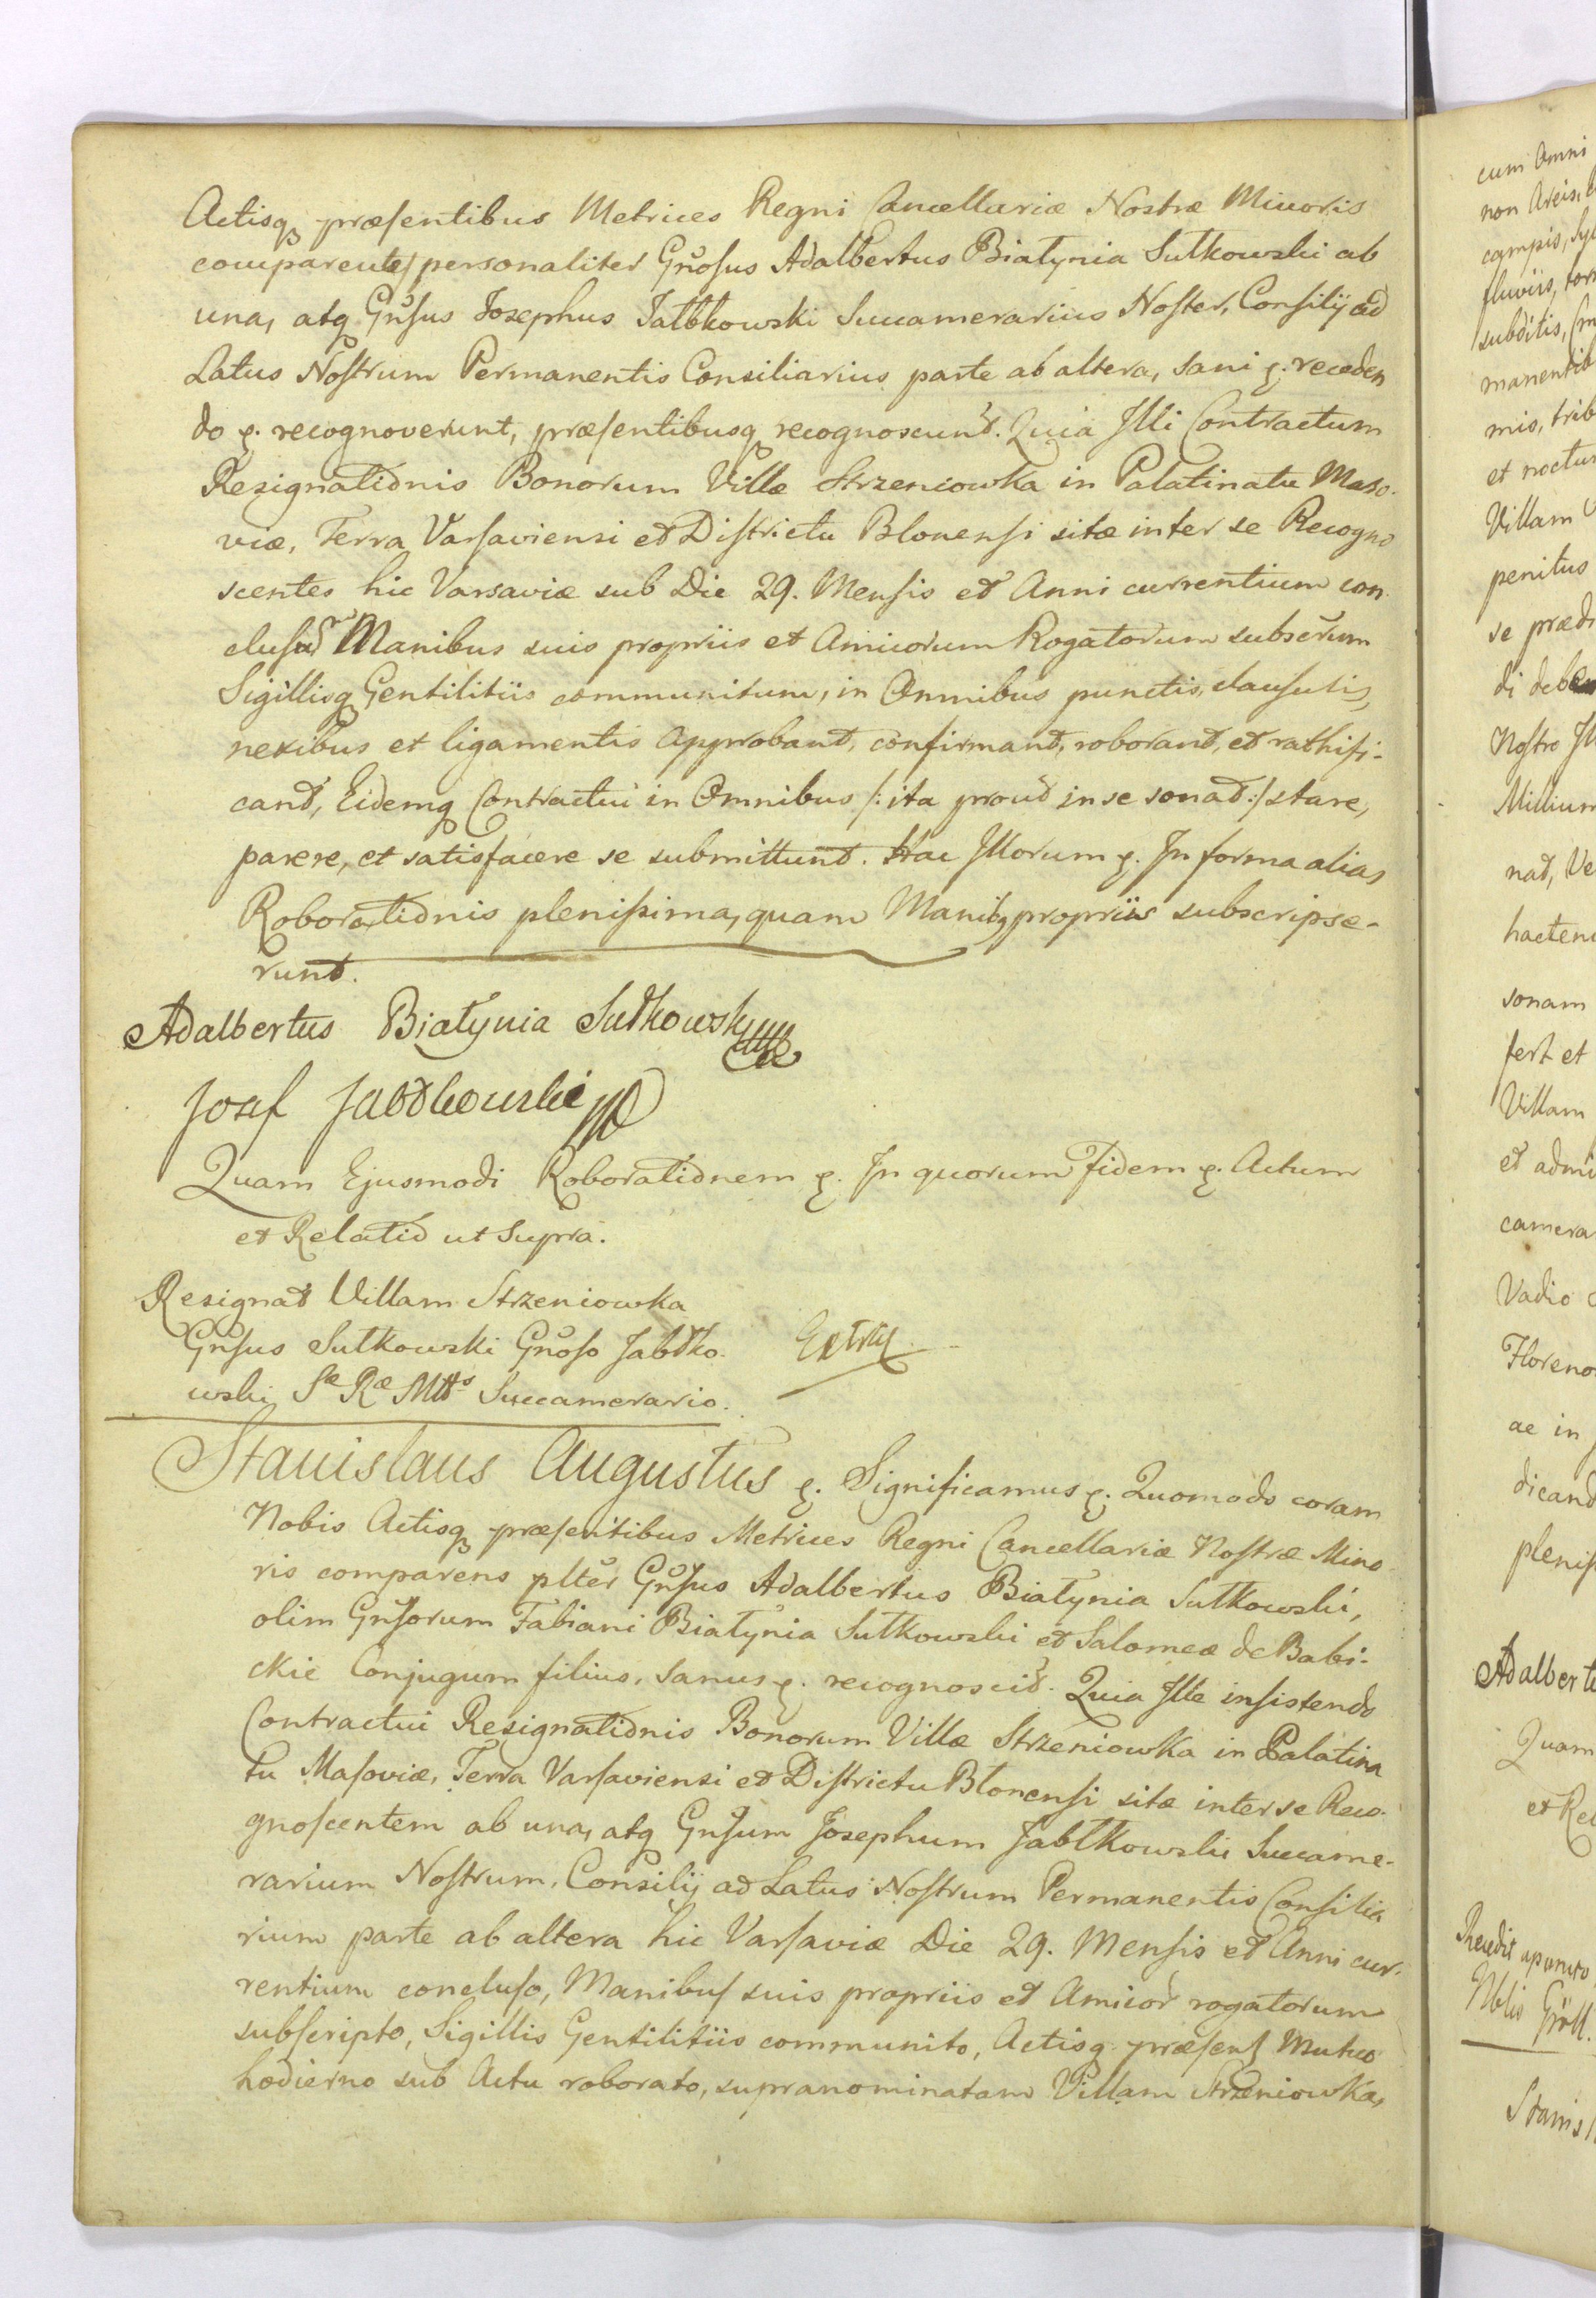 Actisq præsentibus Metrices Regni Cancellariæ Nostræ Minoris
comparentes personaliter Gnosus Adalbertus Białynia Sutkowski ab
una, atq Gnsus Josephus Jabłkowski Succamerarius Noster, Consilij ad
Latus Nostrum Permanentis Consiliarius parte ab altera, sani ę. receden
do ę. recognoverunt, præsentibusq recognoscunt. Quia Illi Contractum
Resignationis Bonorum Villæ Strzeniowka in Palatinatu Maso-
viæ, Terra Varsaviensi et Districtu Blonensi sitæ inter se Recogno
scentes hic Varsaviæ sub Die 29. Mensis et Anni currentium con-
clusum Manibus suis propriis et Amicorum Rogatorum subscrum
Sigillisq Gentilitiis communitum, in Omnibus punctis, clausulis,
nexibus et ligamentis approbant, confirmant, roborant, et rathifi-
cant, Eidemq Contractui in Omnibus /: ita prout in se sonat :/ stare,
parere, et satisfacere se submittunt. Hac Illorum ę. In forma alias
Roborationis plenissima, quam Manibq propriis subscripse-
runt.
Adalbertus Białynia Sutkowski
Josef Jabłkowski
Quam Ejusmodi Roborationem ę. In quorum Fidem ę. Actum
et Relatio ut Supra.
Resignat Villam Strzeniowka
Gnsus Sutkowski Gnoso Jabłko-
wski Sæ Ræ Mtts Succamerario.
Stanislaus Augustus ę. Significamus ę. Quomodo coram
Nobis Actisq præsentibus Metrices Regni Cancellariæ Nostræ Mino
ris comparens plter Gnsus Adalbertus Białynia Sutkowski,
olim Gnsorum Fabiani Białynia Sutkowski et Salomeæ de Babi-
ckie Conjugum filius, sanus ę. recognoscit. Quia Ille insistendo
Contractui Resignationis Bonorum Villæ Strzeniowka in Palatina
tu Masoviæ, Terra Varsaviensi et Districtu Błonensi sitæ inter se Reco-
gnoscentem ab una, atq Gnsum Josephum Jabłkowski Succame-
rarium Nostrum, Consilij ad Latus Nostrum Permanentis Consilia
rium parte ab altera hic Varsaviæ Die 29. Mensis et Anni cur-
rentium concluso, Manibus suis propriis et Amicor rogatorum
subscripto, Sigillis Gentilitiis communito, Actisq præsent Mutuo
hodierno sub Actu roborato, supranominatam Villam Strzeniowka,
cum Omni
non Areis,
campis,
fluviis,
subditis,
manentib
mis, trib
et noctur
Villam
penitus
se prædi
di deben
Nostro
Millium
nat, Ve
hacten
sonam
fert et
Villam
et admi
camera
Vadio
Floreno
ae in
dicand
plenis
Adalberte
Quam
et Rel
Stanis